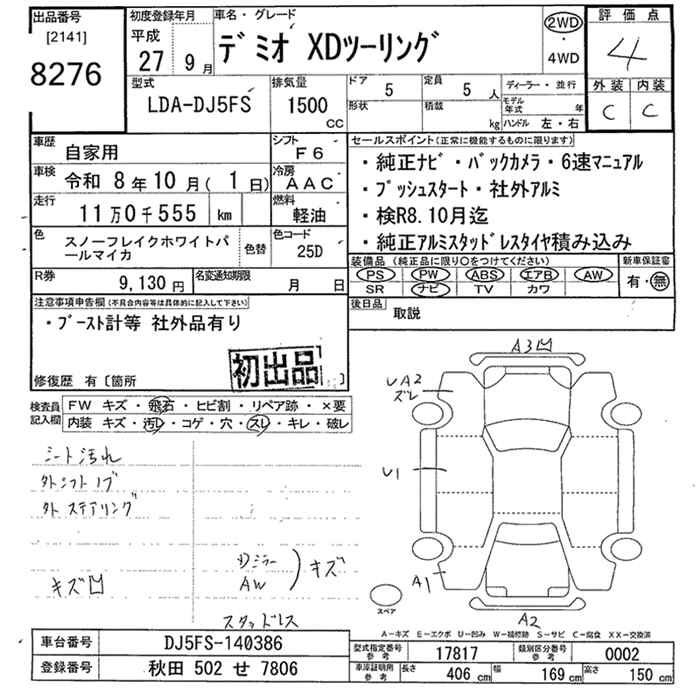 出品番号 初度登録年月 車名・グレード 2WD 評価点
[2141] 平成 デミオ XDツーリング ・
8276 27年 9月 4WD 4
型式 排気量 ドア 5 定員 5人 ディーラー・並行 外装 内装
LDA-DJ5FS 1500cc 形状 積載 kg モデル年式 年 C C
ハンドル 左・右
車歴 自家用 シフト F6 セールスポイント(正常に機能するものに限ります)
車検 令和 8年10月(1日) 冷房 AAC ・純正ナビ・バックカメラ・6速マニュアル
走行 11万0千555 km 燃料 軽油 ・プッシュスタート・社外アルミ
・検R8.10月迄
色 スノーフレイクホワイトパールマイカ 色替 色コード 25D ・純正アルミスタッドレスタイヤ積み込み
装備品 (純正品に限り○をつけてください) 新車保証書
R券 9,130円 名変通知期限 月 日 PS PW ABS エアB AW 有・無
SR ナビ TV カワ
注意事項申告欄(不具合内容等は具体的に記入して下さい) 後日品 取説
・ブースト計等 社外品有り
初出品
修復歴 有〔箇所 〕
検査員記入欄 FW キズ・飛石・ヒビ割・リペア跡・×要
内装 キズ・汚レ・コゲ・穴・スレ・キレ・破レ
A3凹
UA2
ズレ
シート汚れ
外シフトノブ U1
外ステアリング
ミラー
AW
キズ
キズ凹 A1
スペア
スタッドレス A2
A-キズ E-エクボ U-凹み W-補修跡 S-サビ C-腐食 XX-交換済
車台番号 DJ5FS-140386 型式指定番号 参考 17817 類別区分番号 参考 0002
登録番号 秋田 502 せ 7806 車庫証明用 参考 長さ 406 cm 幅 169 cm 高さ 150 cm